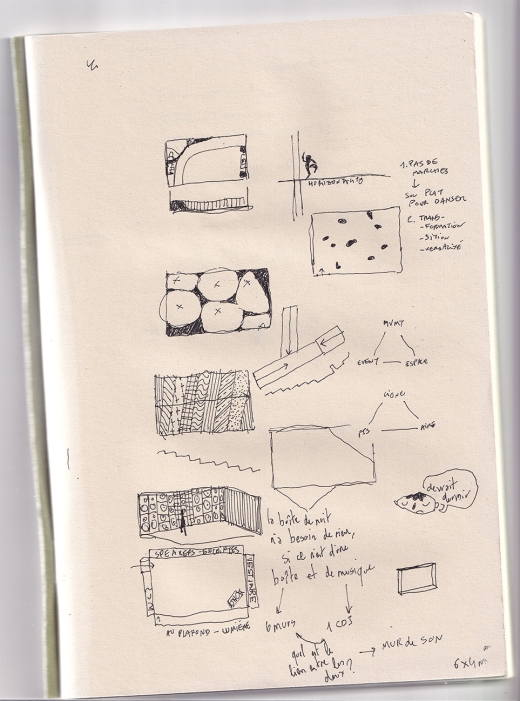 1. PAS DE
MARCHES
SOL PLAT
POUR DANSER
HORIZONTALITÉ
2. TRANS-
-FORMATION
-SITION
-VERSALITÉ
MVMT
EVENT ESPACE
LIGNE
PTS
devrait
dormir
la boîte de nuit
n'a besoin de rien,
si ce n'est d'une
boîte et de musique
SPEAKERS-
AU PLAFOND - LUMIÈRE
6 MURS 1 CDJ
quel est le
lien entre les
deux?
MUR DE SON
6x4m